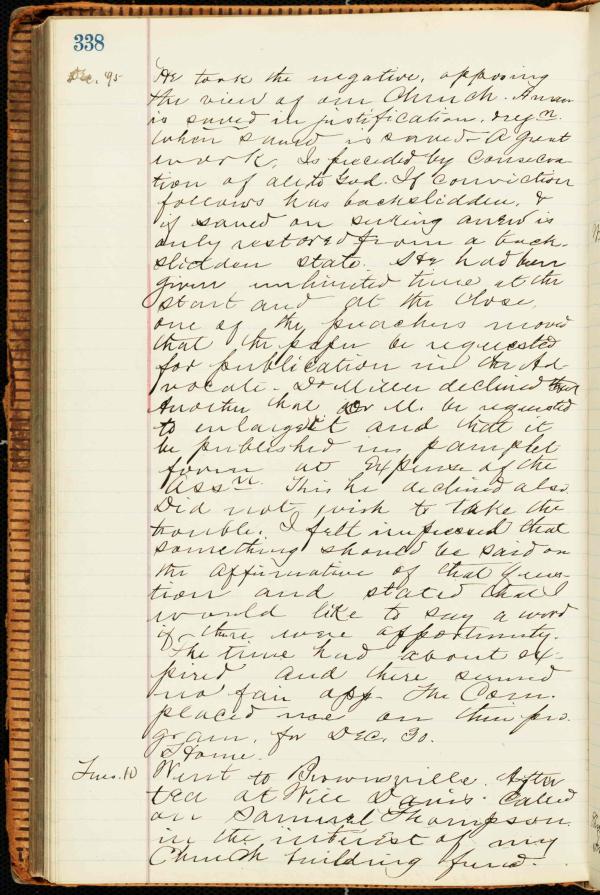 338
Dec. 95
He took the negative, opposing
the view of our Church. A man
is saved in justification. & regn.
When saved is saved - A great
work. Is preceded by consecra-
tion of all to God. If conviction
follows has backslidden, &
if saved on seeking anew is
only restored from a back-
slidden state. He had been
given unlimited time at the
start and at the close
one of the preachers moved
that the paper be requested
for publication in the Ad-
vocate - Dr Miller declined that
Another that Dr M. be requested
to enlarge it and that it
be published in pamplet
form at expense of the
Assn. This he declined also
Did not wish to take the
trouble. I felt impressed that
something should be said on
the affirmative of that Ques-
tion and stated that I
would like to say a word
if there were opportunity.
The time had about ex-
pired and there seemed
no fair opp. The Com.
placed me on their pro-
gram. for Dec. 30.
Home.
Tues. 10
Went to Brownsville. After
tea at Will Davis. Called
on Samuel Thompson
in the interest of my
Church building fund.